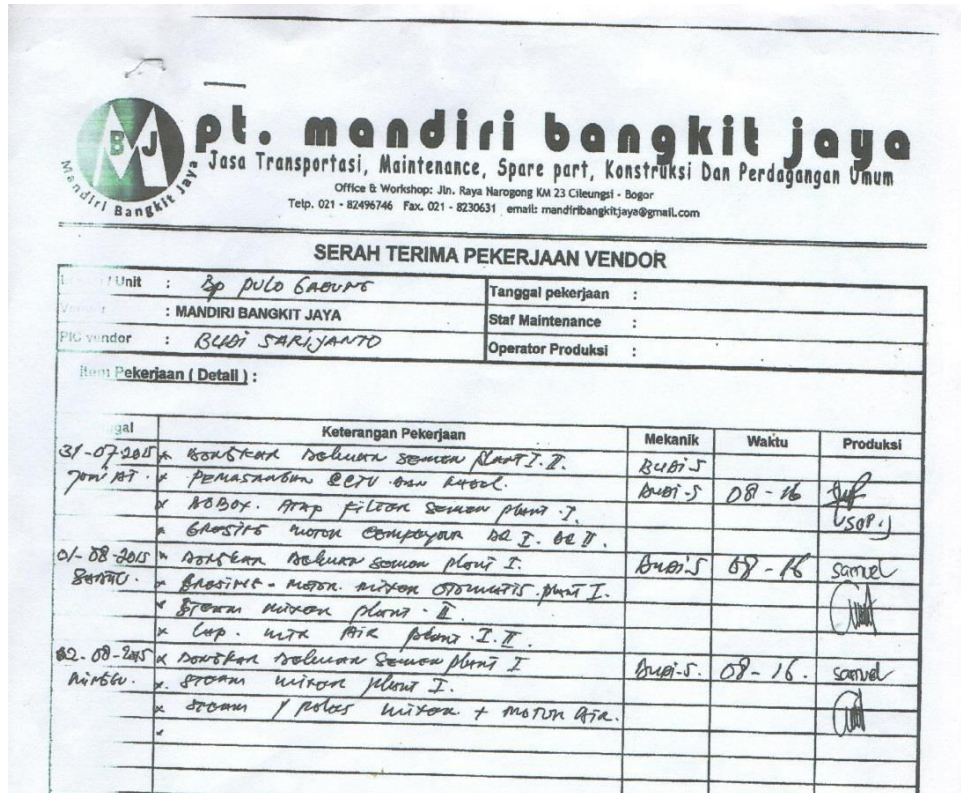 BMJ
Mandiri Bangkit Jaya
pt. mandiri bangkit jaya
Jasa Transportasi, Maintenance, Spare part, Konstruksi Dan Perdagangan Umum
Office & Workshop: Jln. Raya Narogong KM 23 Cileungsi - Bogor
Telp. 021 - 82496746 Fax. 021 - 8230631 email: mandiribangkitjaya@gmail.com
SERAH TERIMA PEKERJAAN VENDOR
/ Unit : Bp PULO GADUNG Tanggal pekerjaan :
: MANDIRI BANGKIT JAYA Staf Maintenance :
PIC vendor : BUDI SARIJANTO Operator Produksi :
Item Pekerjaan ( Detail ) :
gal Keterangan Pekerjaan Mekanik Waktu Produksi
31-07-2015 x BONGKAR semen plant I. II. BUDI S
x PEMASANGAN CCTV DAN BUDI-S 08-16
x filter semen plant I.
x motor DR I. DR II.
01-08-2015 x BONGKAR semen plant I. BUDI S 08-16 samuel
SABTU. x motor mixer OTOMATIS plant I.
x STEAM mixer plant II
x AIR plant I. II.
02-08-2015 x BONGKAR semen plant I BUDI-S. 08-16. samuel
MINGGU. x STEAM mixer plant I.
x STEAM / mixer + MOTOR AIR.
x